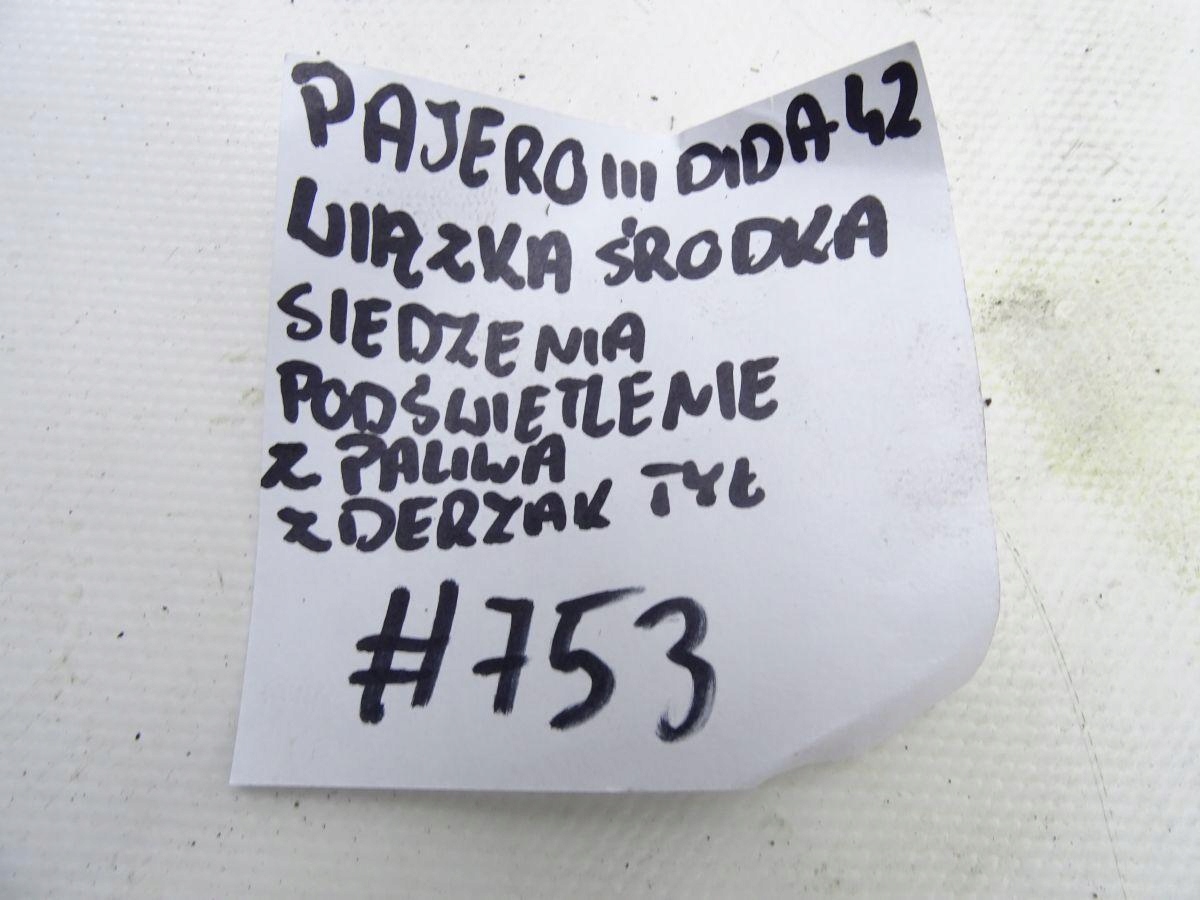 PAJERO III DIDA 42
WIĄZKA ŚRODKA
SIEDZENIA
PODŚWIETLENIE
Z PALIWA
ZDERZAK TYŁ
#753